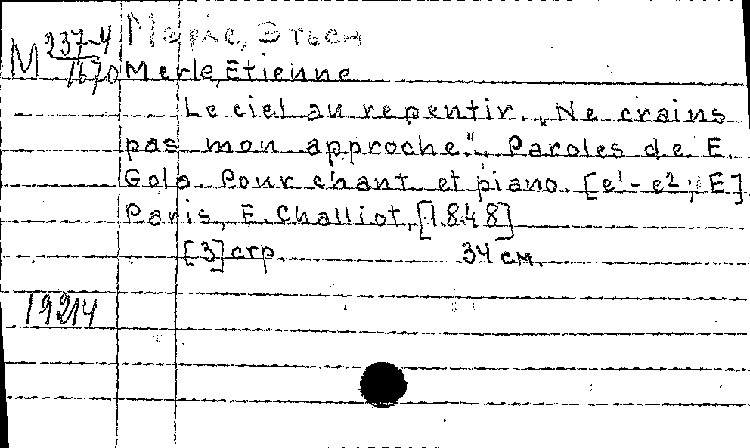 Мерле, Этьен
М 237-4/1670
Merle, Etienne
Le ciel au repentir. „Ne crains
pas mon approche". Paroles de E.
Gola. Pour chant et piano. [e¹-e², E]
Paris, E. Challiot, [1848]
[3] стр. 34 см.
19214